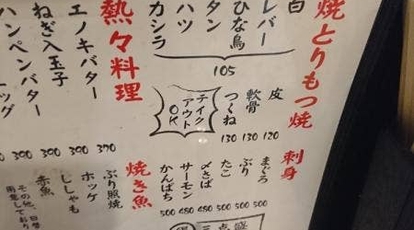 焼とりもつ焼
白
レバー
ひな鳥
タン
ハツ
カシラ
105
皮 120
軟骨 130
つくね 130
テイク
アウト
OK
刺身
まぐろ 500
ぶり 500
たこ 500
〆さば 480
サーモン 480
かんぱち 500
三点盛
熱々料理
エノキバター 370
ねぎ入玉子 390
ハンペンバター 390
焼き魚
ぶり照焼
ホッケ
ししゃも
赤魚
その他、日替